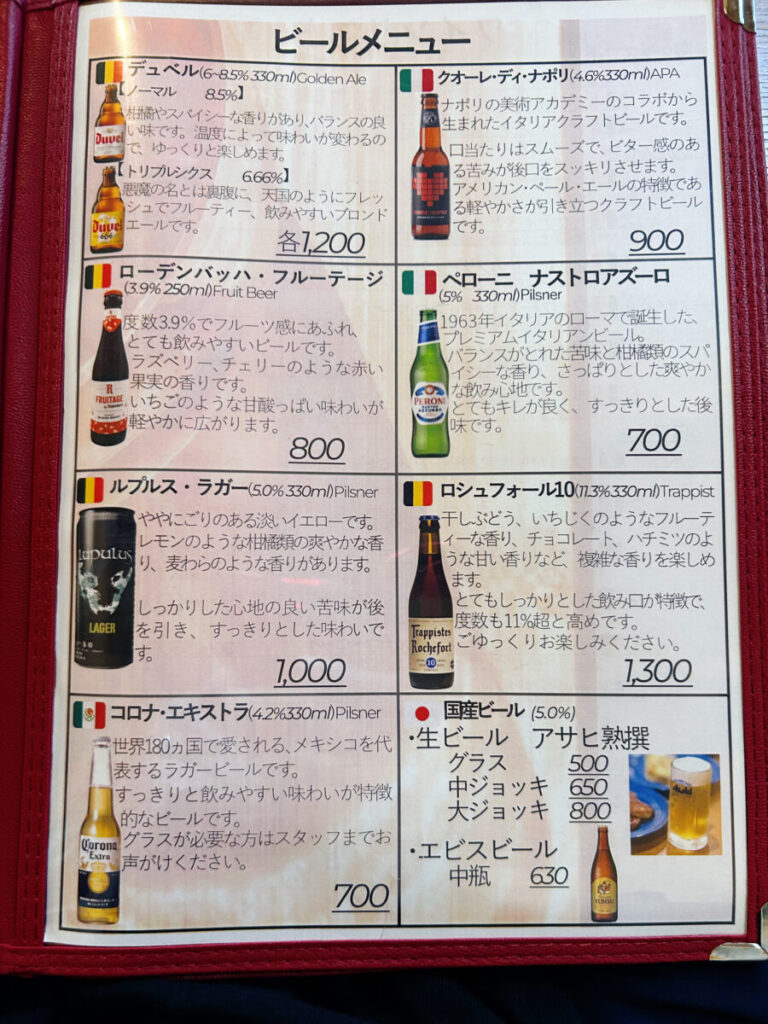 ビールメニュー
デュベル(6~8.5% 330ml)Golden Ale
【ノーマル 8.5%】
柑橘やスパイシーな香りがあり、バランスの良
い味です。温度によって味わいが変わるの
で、ゆっくりと楽しめます。
Duvel
【トリプルシクス 6.66%】
悪魔の名とは裏腹に、天国のようにフレッ
シュでフルーティー、飲みやすいブロンド
エールです。
Duvel
666
各1,200
クオーレ・ディ・ナポリ(4.6%330ml)APA
ナポリの美術アカデミーのコラボから
生まれたイタリアクラフトビールです。
口当たりはスムーズで、ビター感のあ
る苦みが後口をスッキリさせます。
アメリカン・ペール・エールの特徴であ
る軽やかさが引き立つクラフトビール
です。
900
ローデンバッハ・フルーテージ
(3.9% 250ml)Fruit Beer
度数3.9%でフルーツ感にあふれ、
とても飲みやすいビールです。
ラズベリー、チェリーのような赤い
果実の香りです。
いちごのような甘酸っぱい味わいが
軽やかに広がります。
R
FRUITAGE
800
ペローニ ナストロアズーロ
(5% 330ml)Pilsner
1963年イタリアのローマで誕生した、
プレミアムイタリアンビール。
バランスがとれた苦味と柑橘類のスパ
イシーな香り、さっぱりとした爽やか
な飲み心地です。
とてもキレが良く、すっきりとした後
味です。
PERONI
700
ルプルス・ラガー(5.0% 330ml)Pilsner
ややにごりのある淡いイエローです。
レモンのような柑橘類の爽やかな香
り、麦わらのような香りがあります。
しっかりした心地の良い苦味が後
を引き、すっきりとした味わいで
す。
LUPULUS
LAGER
1,000
ロシュフォール10(11.3%330ml)Trappist
干しぶどう、いちじくのようなフルーテ
ィーな香り、チョコレート、ハチミツのよ
うな甘い香りなど、複雑な香りを楽しめ
ます。
とてもしっかりとした飲み口が特徴で、
度数も11%超と高めです。
ごゆっくりお楽しみください。
Trappistes
Rochefort
10
1,300
コロナ・エキストラ(4.2%330ml)Pilsner
世界180ヵ国で愛される、メキシコを代
表するラガービールです。
すっきりと飲みやすい味わいが特徴
的なビールです。
グラスが必要な方はスタッフまでお
声がけください。
Corona
Extra
700
国産ビール (5.0%)
・生ビール アサヒ熟撰
グラス 500
中ジョッキ 650
大ジョッキ 800
Asahi
・エビスビール
中瓶 630
YEBISU